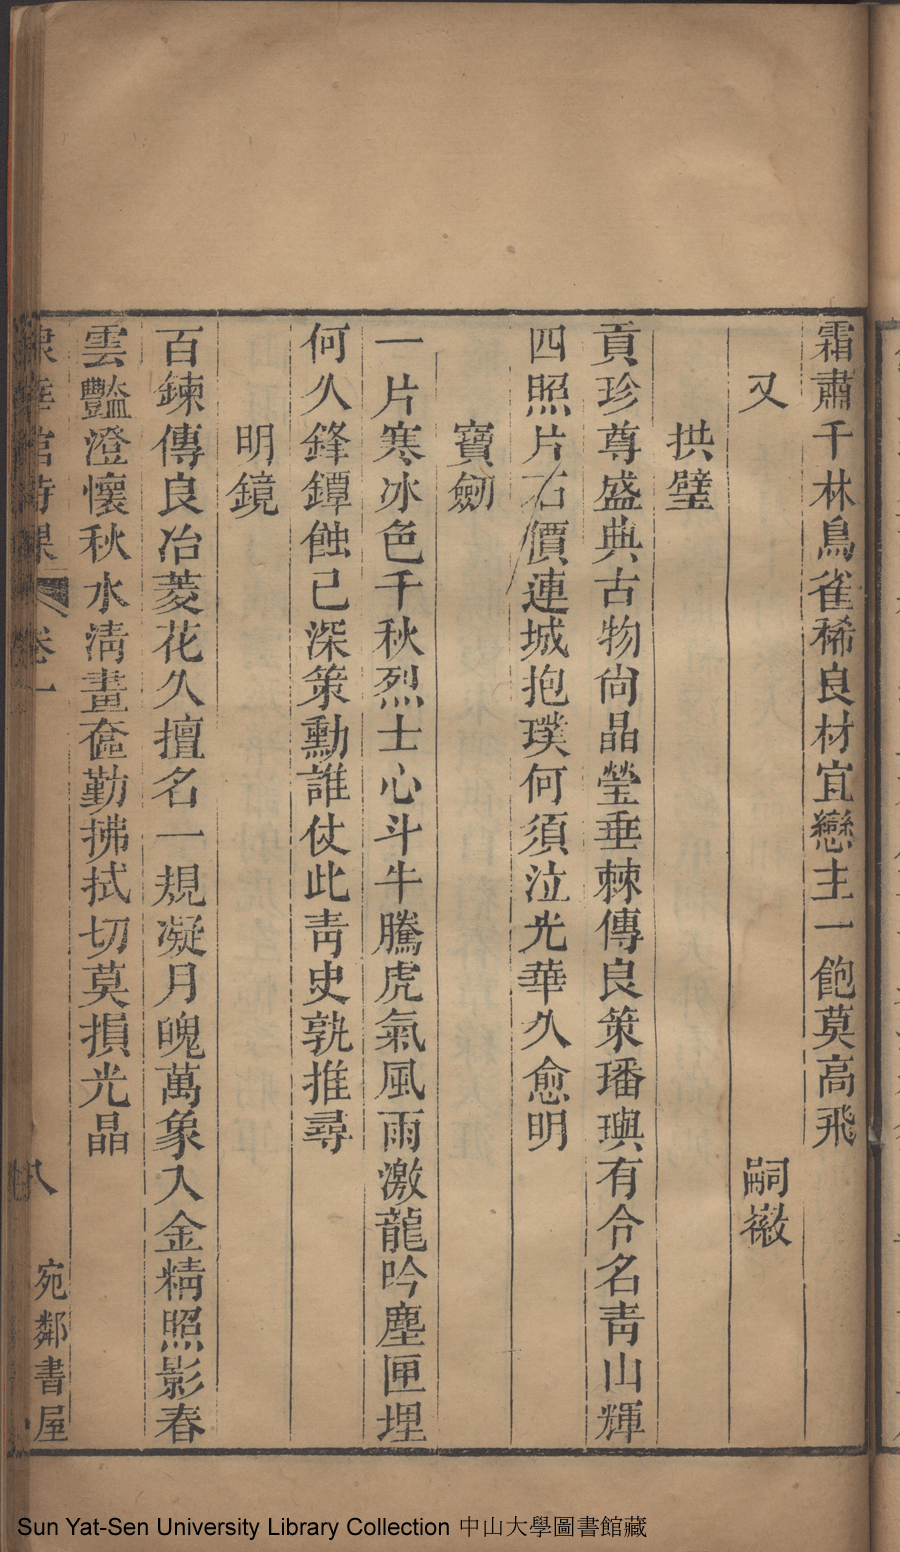 霜肅千林鳥雀稀良材宜戀主一飽莫高飛
又 嗣徽
拱璧
貢珍尊盛典古物尙晶瑩垂棘傳良策璠璵有令名靑山輝
四照片石價連城抱璞何須泣光華久愈明
寶劒
一片寒冰色千秋烈士心斗牛騰虎氣風雨激龍吟塵匣埋
何久鋒鐔蝕已深策勳誰仗此靑史孰推尋
明鏡
百鍊傳良冶菱花久擅名一規凝月魄萬象入金精照影春
雲豔澄懷秋水淸晝奩勤拂拭切莫損光晶
棣華館詩課 卷一 八 宛鄰書屋
Sun Yat-Sen University Library Collection 中山大學圖書館藏